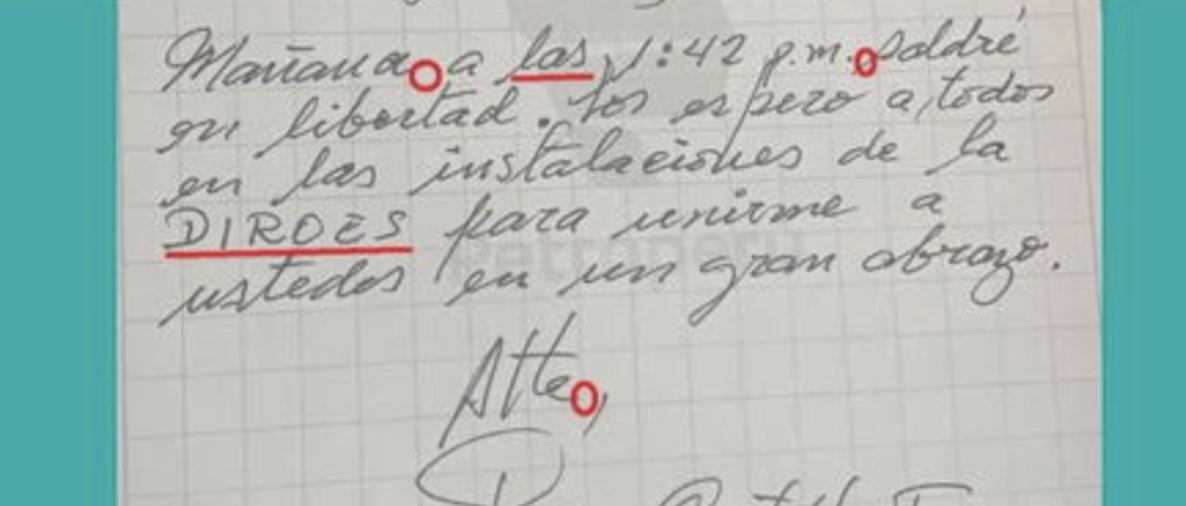 Mañana a las 1:42 p.m. saldré
en libertad. Los espero a todos
en las instalaciones de la
DIROES para unirme a
ustedes en un gran abrazo.
Atte,